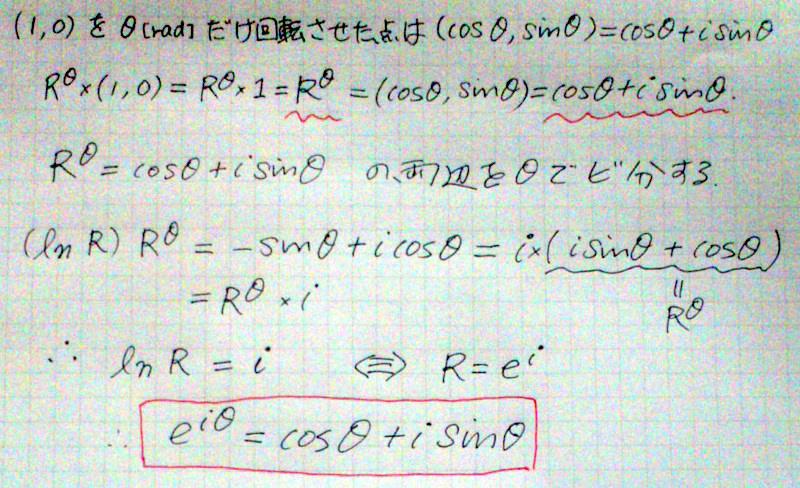 (1,0) を θ[rad] だけ回転させた点は (cosθ, sinθ)=cosθ+i sinθ
R^θ×(1,0) = R^θ×1 = R^θ = (cosθ, sinθ)=cosθ+i sinθ.
R^θ = cosθ + i sinθ の両辺をθでビ分する.
(ln R) R^θ = −sinθ + i cosθ = i×(i sinθ + cosθ)
= R^θ × i
||
R^θ
∴ ln R = i ⇔ R = e^i
∴ e^{iθ} = cosθ + i sinθ